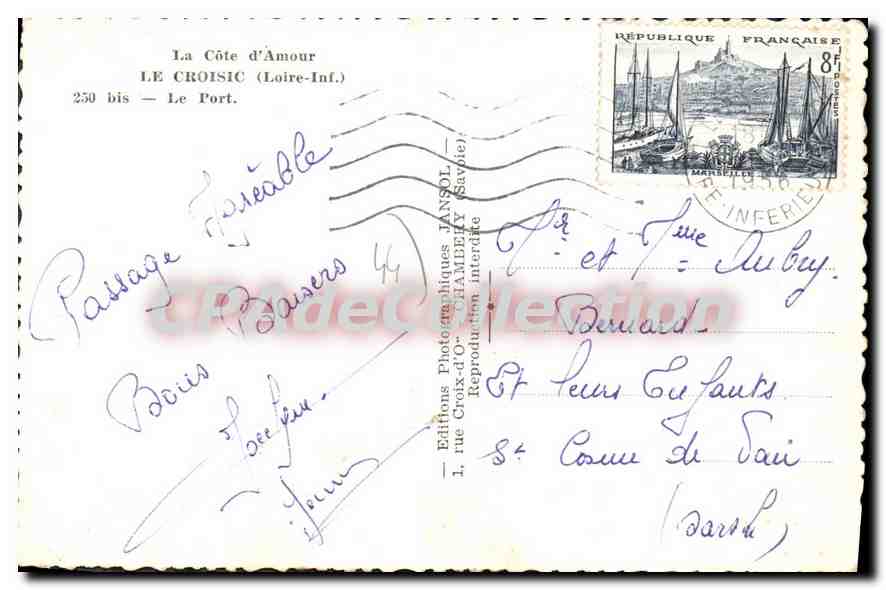 La Côte d'Amour
LE CROISIC (Loire-Inf.)
250 bis — Le Port.
RÉPUBLIQUE FRANÇAISE
8F
POSTES
MARSEILLE
1956
RE-INFERIEU
Passage Agréable
Bons Baisers
44
Jocelyne
— Editions Photographiques JANSOL —
1, rue Croix-d'Or CHAMBERY (Savoie)
Reproduction interdite
CPAdeCollection
Mr et Mme Aubry
Bernard
Et leurs Enfants
St Cosme de Vair
(Sarthe)